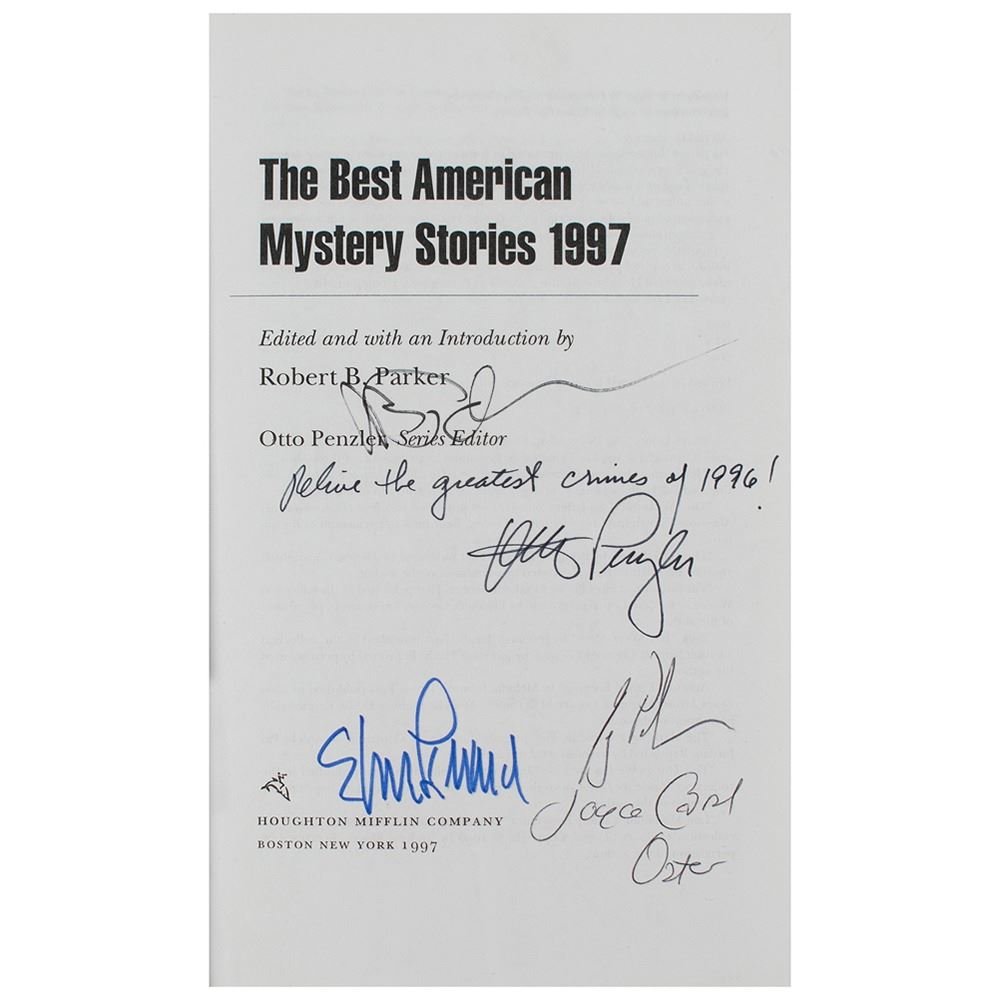 The Best American
Mystery Stories 1997
Edited and with an Introduction by
Robert B. Parker
Otto Penzler, Series Editor
Relive the greatest crimes of 1996!
Otto Penzler
Elmore Leonard
Joyce Carol
Oates
HOUGHTON MIFFLIN COMPANY
BOSTON NEW YORK 1997